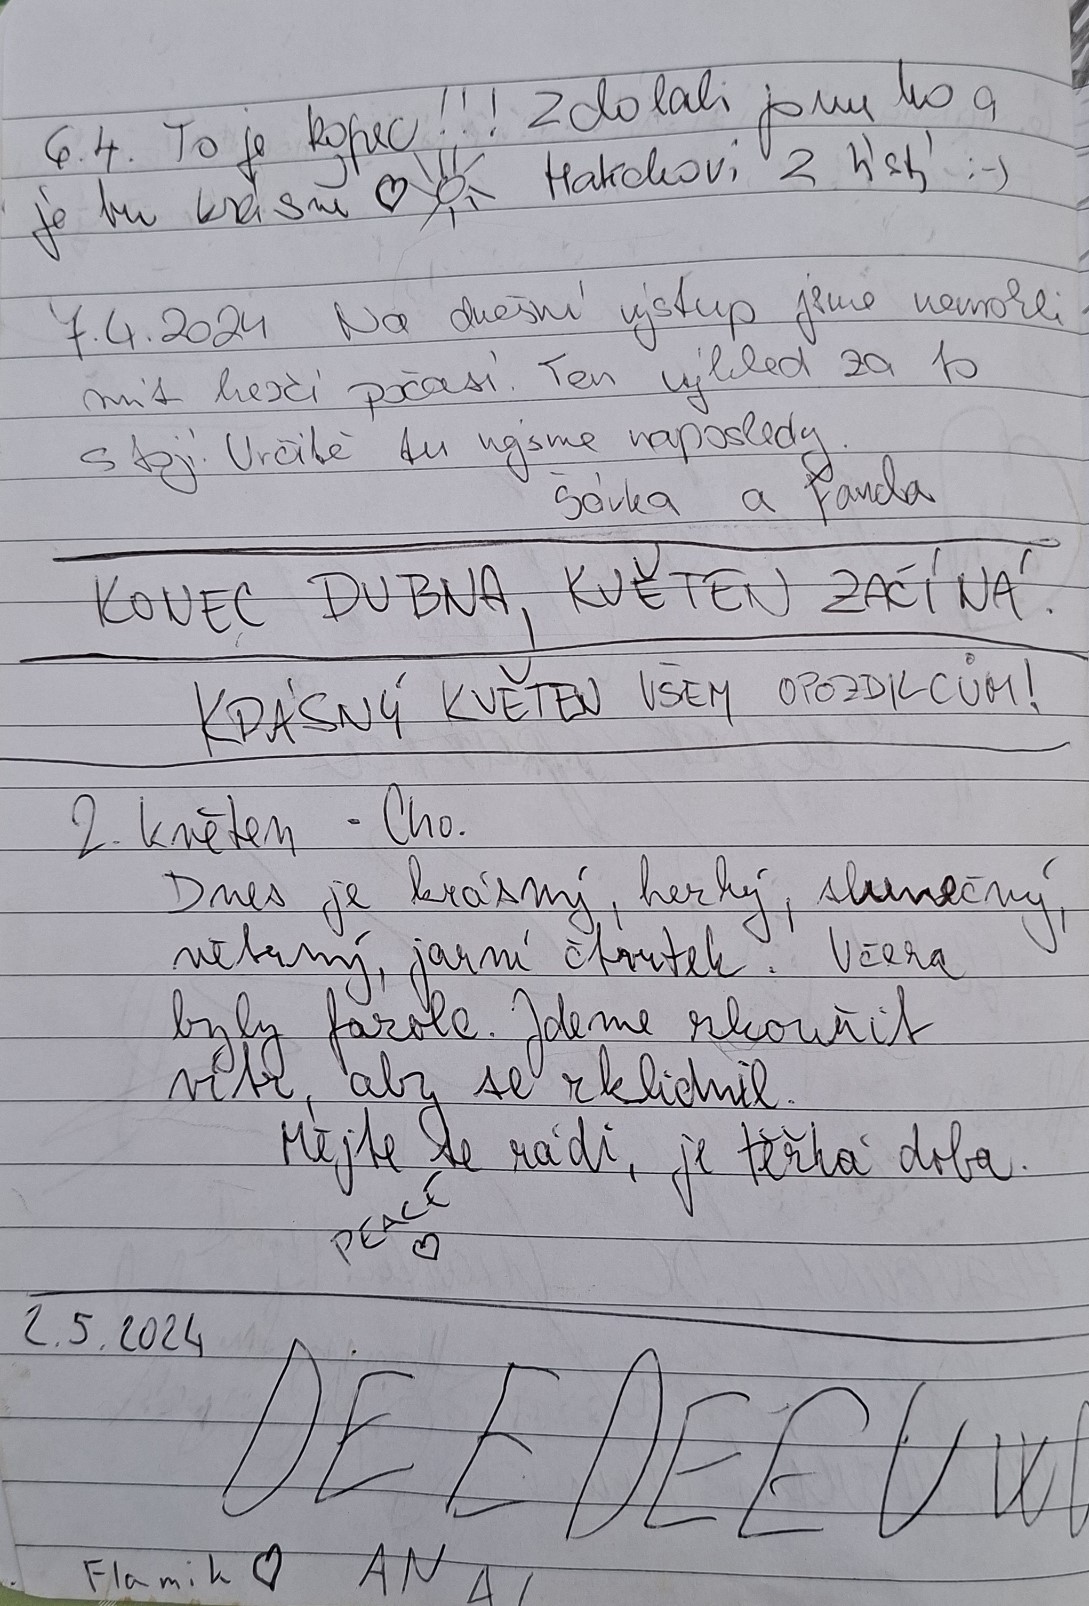 6.4. To je kopec!!! Zdolali jsme ho a
je tu krásně ♡ z Ústí :-)
7.4.2024 Na dnešní výstup jsme nemohli
mít hezčí počasí. Ten výhled za to
stojí. Určitě tu nejsme naposledy.
Šárka a Fanda
KONEC DUBNA, KVĚTEN ZAČÍNÁ.
KRÁSNÝ KVĚTEN VŠEM OPOZDILCŮM!
2. květen - Čho.
Dnes je krásný, hezký, slunečný,
větrný, jarní čtvrtek. Včera
byly fárole. Jdeme zkouřit
vítr, aby se zklidnil.
Mějte se rádi, je těžká doba.
PEACE
♡
2.5.2024
DEEDEEUW
Flamik ♡ AN